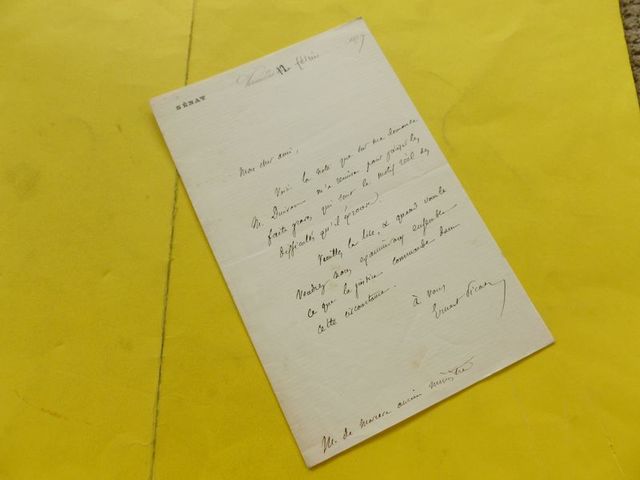 SÉNAT
12 février
Mon cher ami,
Voici la note que sur ma demande
M. m'a remise pour préciser les
faits graves qui sont le motif réel des
difficultés qu'il éprouve.
Veuillez la lire, & quand vous le
voudrez nous examinerons ensemble
ce que la justice commande dans
cette circonstance.
à vous
Ernest Picard
M. de Marcère ancien ministre